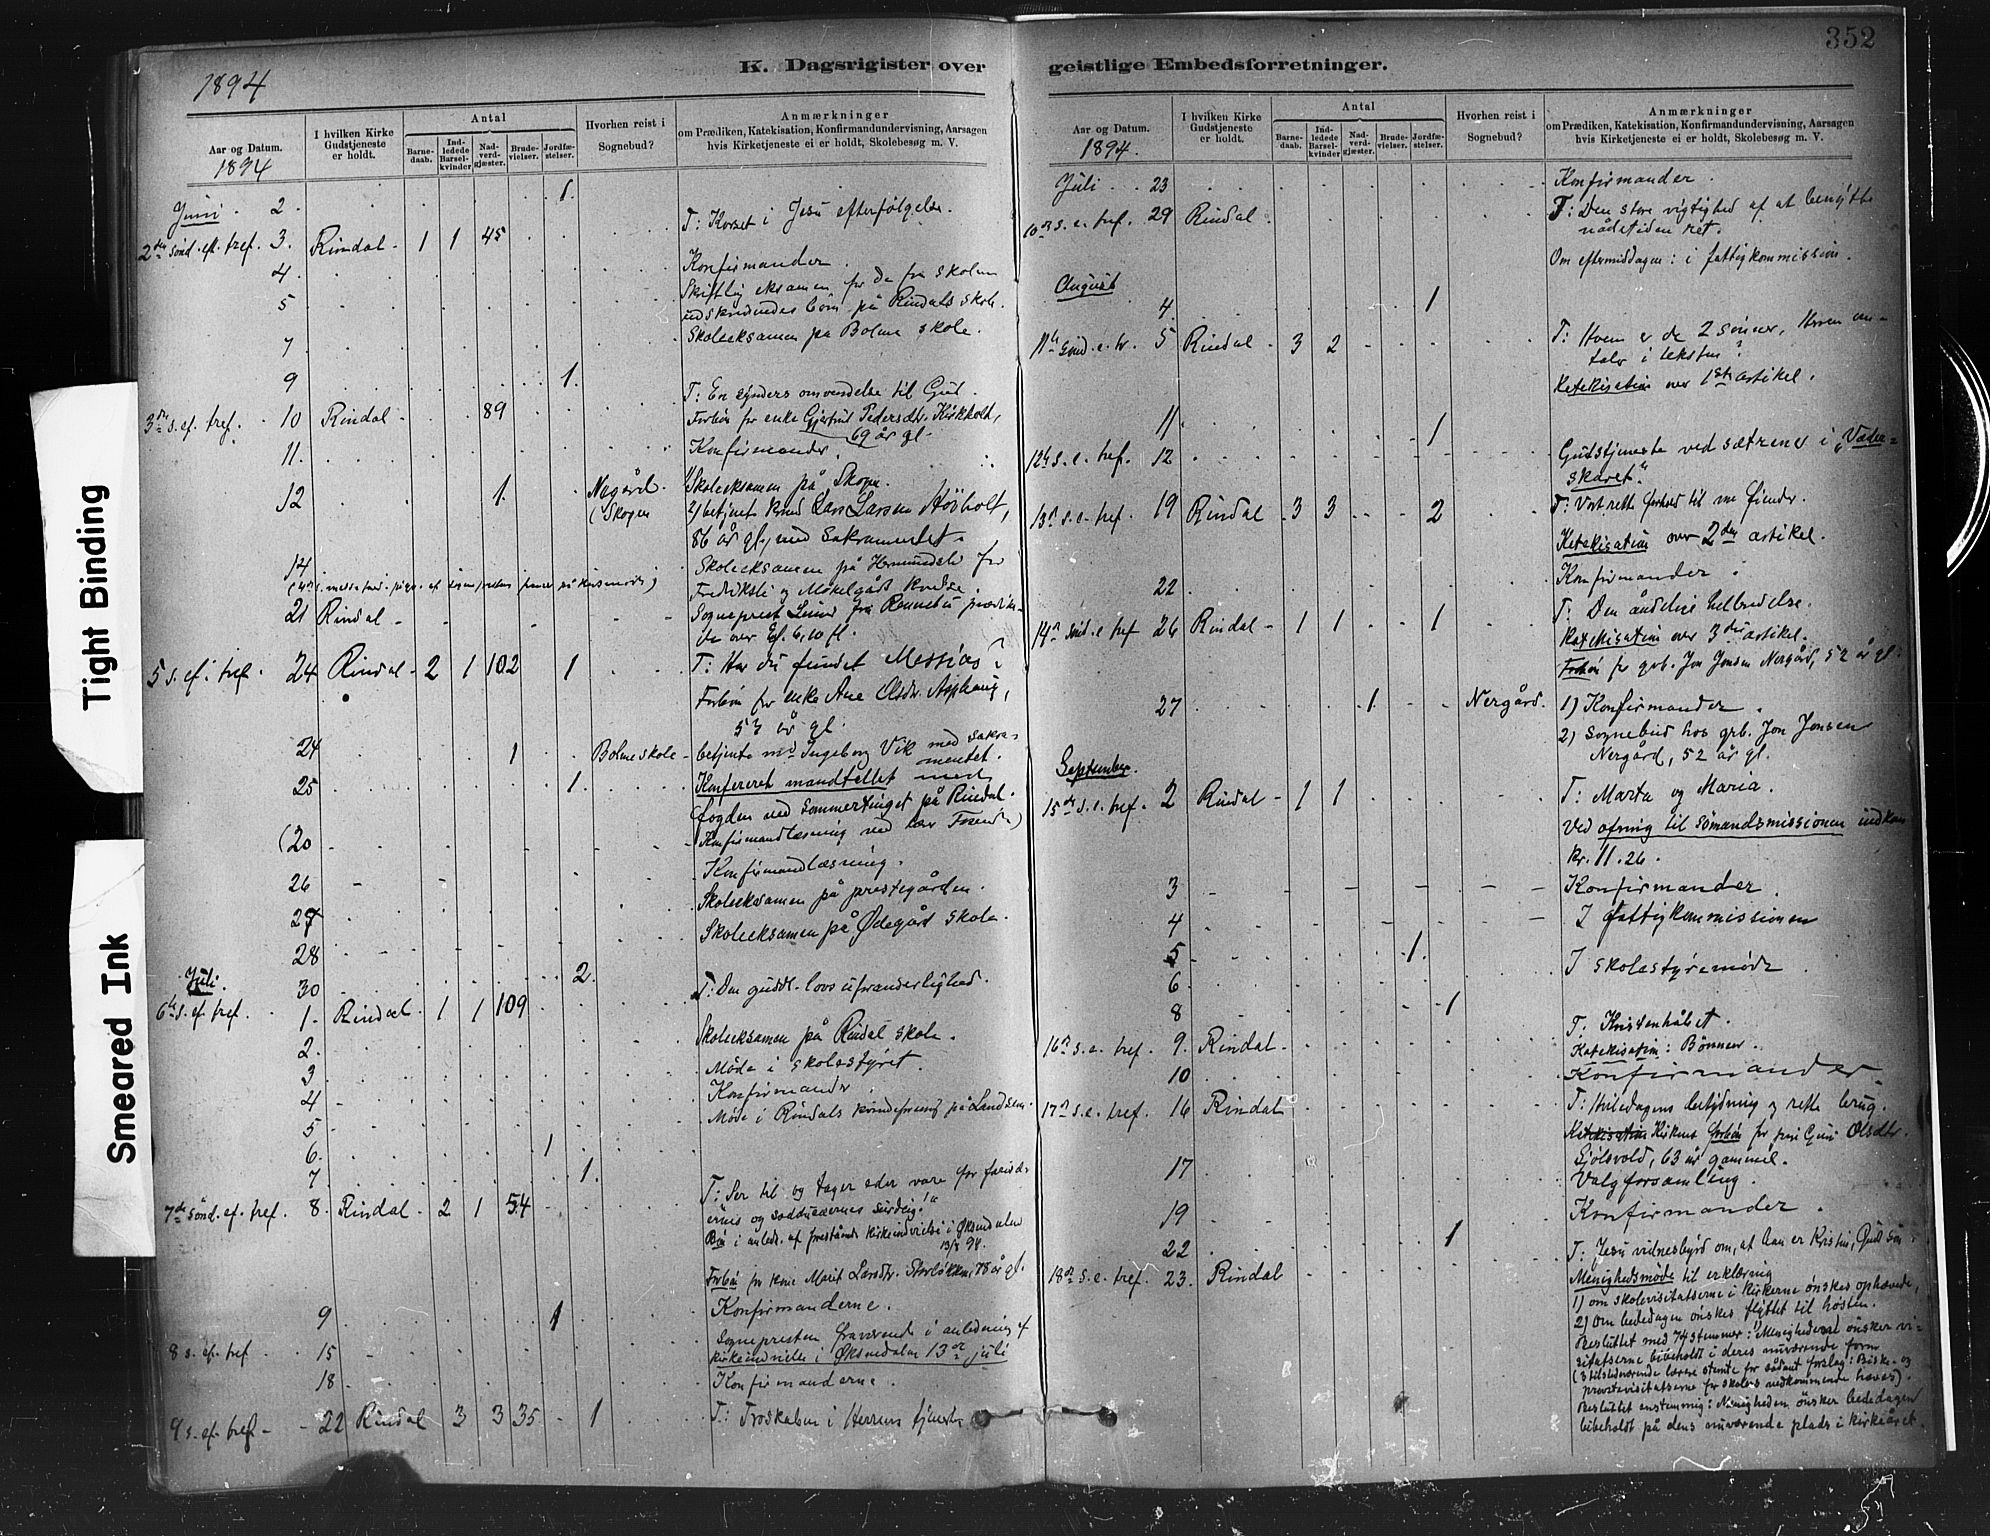 352
1894
K. Dagsrigister over
Aar og Datum.
1894
I hvilken Kirke Gudstjeneste er holdt.
Antal
Barne-daab.
Ind-ledede Barsel-kvinder
Nad-verd-gjæster.
Brude-vielser.
Jordfæ-stelser.
Hvorhen reist i Sognebud?
Anmærkninger
om Prædiken, Katekisation, Konfirmandundervisning, Aarsagen
hvis Kirketjeneste ei er holdt, Skolebesøg m. V.
Juni 2. 1.
2den sönd. ef. tref. 3. Rindal 1 1 45 T: Korset i Jesu efterfølgelse.
4 Konfirmander.
5 Skriftlig eksamen for de fra skolen
udskrivendes börn på Rindals skole.
7 Skoleeksamen på Bolme skole.
9 1.
3die s. ef. tref. 10 Rindal 89 T: En synders omvendelse til Gud.
Forbön for enke Gjertrud Pedersdtr. Kirkholt,
69 år gl.
11. Konfirmander.
12 1. Negård (Skogen 1) Skoleeksamen på Skogen.
2) betjent Lars Larsen
86 år gl., med Sakramentet.
14 Skoleeksamen på for
Fredriksli og
21 Rindal Sogneprest Lund fra Rennebu
over Ef. 6, 10 fl.
5 s. ef. tref. 24 Rindal 2 1 102 1 T: Har du fundet Messias?
Forbön for enke Ane Olsdtr. Asphaug,
53 år gl.
24 1 Bolme skole betjente Ingeborg Vik med sakra-
mentet.
25 1. Konfereret mandtallet med
fogden ved sommertinget på Rindal.
(20 Konfirmandlæsning ved
26 Konfirmandlæsning.
27 Skoleeksamen på prestegården.
28 Skoleeksamen på Ødegård skole.
30 2.
Juli.
6te s. ef. tref. 1. Rindal 1 1 109 T: Den guddl. lovs uforanderlighed.
2. Skoleeksamen på Rindal skole.
3 Møde i skolestyret.
4 Konfirmander.
5 Møde i Rindals kvindeforening på Landsem.
6. 1
7 1.
7de sönd. ef. tref. 8. Rindal 2 1 54 T: "Ser til og tager eder vare for farisæ-
ernes og sadducæernes surdeig!"
Bön i anledn. af forestående kirkeindvielse i Øksendalen
13/7 94.
Forbön for kone Marit Larsdtr. 78 år gl.
9 1 Konfirmanderne.
8 s. ef. tref 15 Sognepresten fraværende i anledning af
kirkeindvielse i Øksendalen 13de juli
18 Konfirmanderne.
9 s. ef. tref 22 Rindal 3 3 35 1 T: Troskaben i Herrens tjeneste
geistlige Embedsforretninger.
Aar og Datum.
1894.
I hvilken Kirke Gudstjeneste er holdt.
Antal
Barne-daab.
Ind-ledede Barsel-kvinder
Nad-verd-gjæster.
Brude-vielser.
Jordfæ-stelser.
Hvorhen reist i Sognebud?
Anmærkninger
om Prædiken, Katekisation, Konfirmandundervisning, Aarsagen
hvis Kirketjeneste ei er holdt, Skolebesøg m. V.
Juli 23 Konfirmander.
10de s. e. tref. 29 Rindal T: Den store vigtighed af at benytte
nådetiden ret.
Om eftermiddagen: i fattigkommission.
August
4. 1
11te sönd. e. tr. 5 Rindal 3 2 T: Hvem er de 2 sönner, Herren om-
taler i teksten?
Katekisation over 1ste artikel.
11 1
12te s. e. tref. 12 Gudstjeneste ved sætrene i "Vader-
skaret".
13de s. e. tref. 19 Rindal 3 3 2 T: Vort rette forhold til vore fiender.
Katekisation over 2den artikel.
22 Konfirmander.
14de sönd. e tref 26 Rindal 1 1 1 T: Den åndelige helbredelse.
Katekisation over 3die artikel.
Forbön for grb. Jon Jonsen Nergård, 52 år gl.
27 1. Nergård. 1) Konfirmander.
2) Sognebud hos grb. Jon Jonsen
Nergård, 52 år gl.
September.
15de s. e. tref. 2 Rindal 1 1 T: Marta og Maria.
Ved ofring til sömandsmissionen indkom
kr. 11.26.
3 Konfirmander.
4 I fattigkommissionen
5 1.
6 I skolestyremöde
8 1
16de s. e. tref. 9. Rindal T: Kristenhåbet.
Katekisation: Bønnen.
10 Konfirmander.
17de s. e. tref. 16 Rindal T: Hviledagens betydning og rette brug.
Katekisation Kirkens forbön for Guri Olsdtr.
Sjölsvold, 63 år gammel.
17 Valgforsamling.
19 Konfirmander.
22 1
18de s. e. tref. 23. Rindal T: Jesu vidnesbyrd om, at han er Kristus, Guds Sön.
Menighedsmöde til erklæring
1) om skolevisitatserne i kirkerne ønskes ophævede,
2) om bededagen ønskes flyttet til høsten.
Besluttet med 74 stemmer: "Menigheden ønsker vi-
sitatserne bibeholdt i deres nuværende form
(3 tilstedeværende lærere stemte for sådant forslag: Biske- og
provstevisitatserne for skolens vedkommende hæves).
Besluttet enstemmig: Menigheden ønsker bededagen
bibeholdt på dens nuværende plads i kirkeåret.
Tight Binding
Smeared Ink